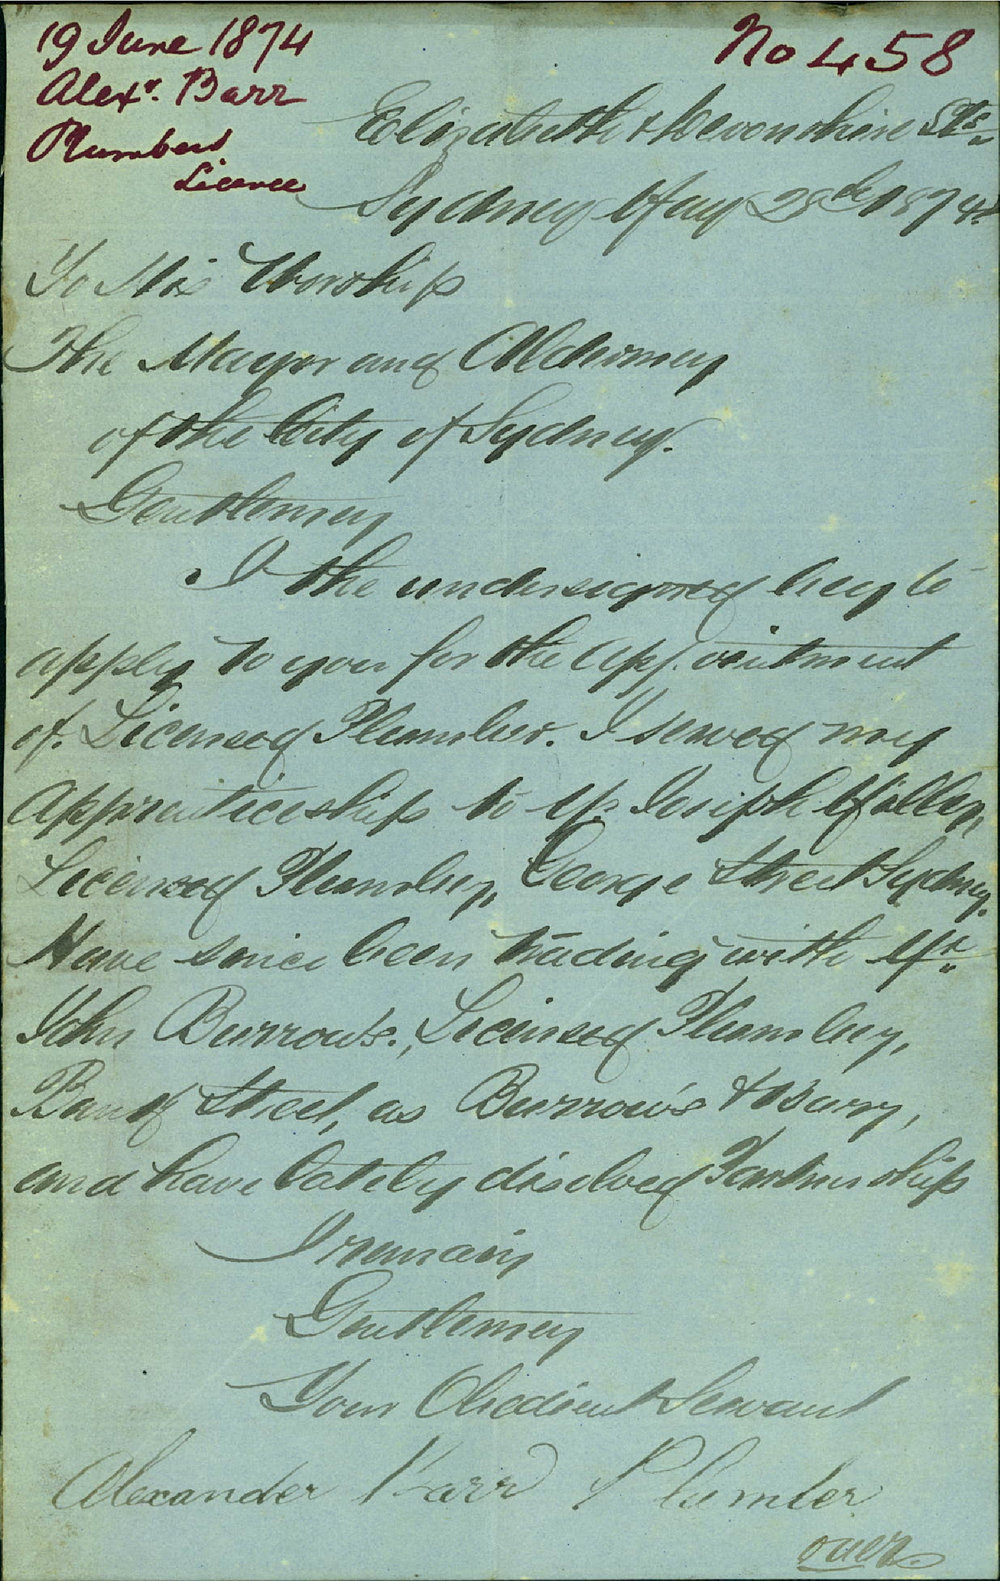 19 June 1874
No 458
Alexr. Barr
Plumbers
Licence
Elizabeth & Devonshire Sts.
Sydney May 28th 1874.
To His Worship
The Mayor and Aldermen
of the City of Sydney.
Gentlemen
I the undersigned beg to
apply to you for the appointment
of Licensed Plumber. I served my
Apprenticeship to Mr Joseph
Licensed Plumber, George Street Sydney.
Have since been trading with Mr.
John Burrows., Licensed Plumber,
Street, as Burrows & Barr,
and have lately disolved Partnership
I remain
Gentlemen
Your Obedient Servant
Alexander Barr Plumber
over